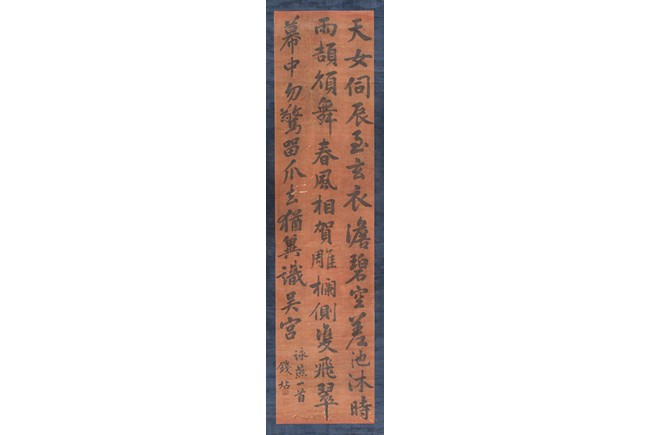 天女伺辰至玄衣澹碧空差池沐時
雨頡頏舞春風相賀雕欄側雙飛翠
幕中勿驚留爪去猶冀識吴宫
詠燕一首
錢坫